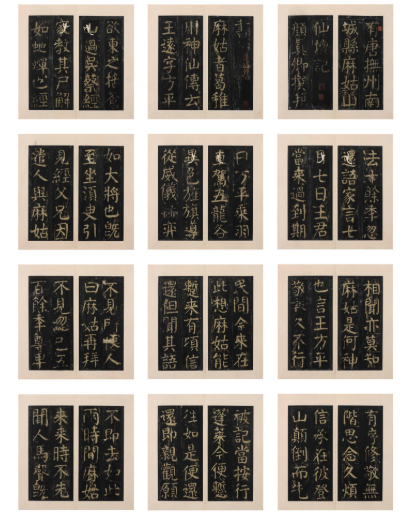 有唐撫州南
城縣麻姑山
仙壇記
顏真卿撰并書
麻姑者葛稚
川神仙傳云
王遠字方平
欲東之括蒼
山過吳蔡經
家教其尸解
如蛇蟬也經
去十餘年忽
還語家言七
月七日王君
當來過到期
日方平乘羽
車駕五龍各
異色旌旗導
從威儀赫弈
如大將也既
至坐須臾引
見經父兄因
遣人與麻姑
相聞亦莫知
麻姑是何神
也言王方平
敬報久不行
民間今來在
此想麻姑能
蹔來有頃信
還但聞其語
不見所使人
曰麻姑再拜
不見忽已五
百餘年尊卑
有序修敬無
階思念久煩
信承在彼登
山顛倒而先
被記當按行
蓬萊今便蹔
往如是便還
還即親觀願
不即去如此
兩時間麻姑
來來時不先
聞人馬聲既